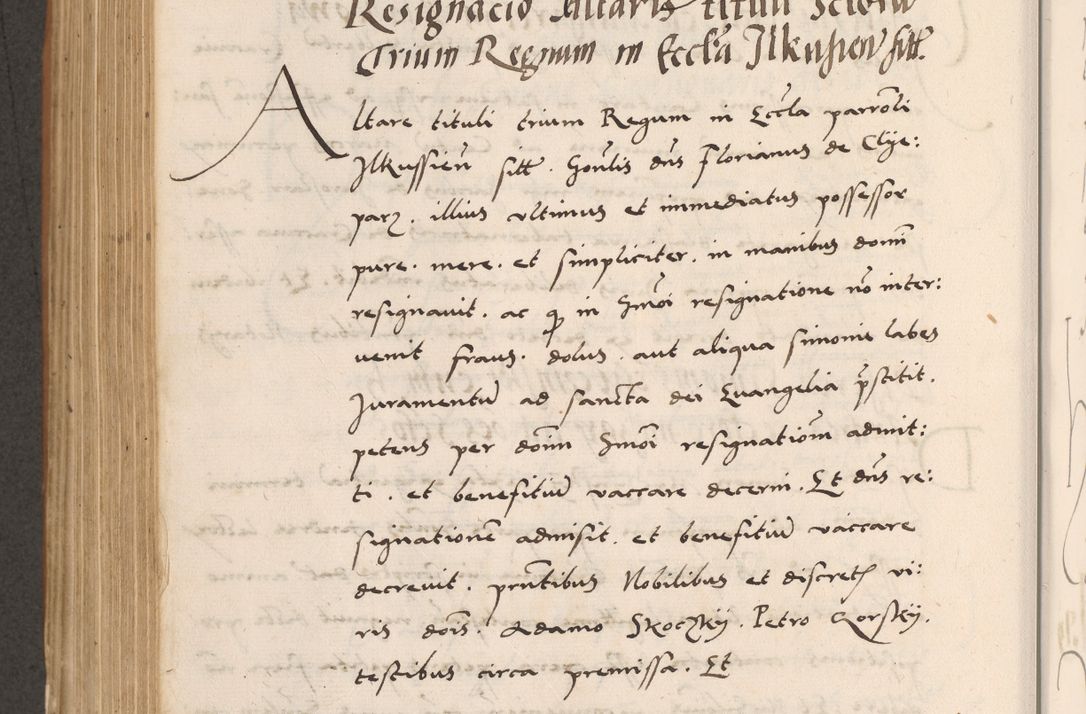 Resignacio Altaris tituli Sctorū
Trium Regnum in Eccla Jlkusien sitt.
Altare tituli trium Regum in Eccla parroāli
Jlkussien sitt. Honlis dns Florianus de Clye:
parz. illius vltimus et immediatus possessor
pure. mere. et simpliciter. in manibus domi
resignauit. ac q in hmōi resignatione nō inter:
uenit fraus. dolus. aut aliqua simonie labes
Juramentū ad sancta dei Euangelia prstitit.
petens per dōim hmōi resignatiom admit:
ti. et benefitiū vaccare decerni. Et dns re:
signationē admisit. et benefitiū vaccare
decreuit. prntibus Nobilibus et discretis vi:
ris dois. Adamo Skoczky. Petro Gorsky.
testibus circa premissa. Et